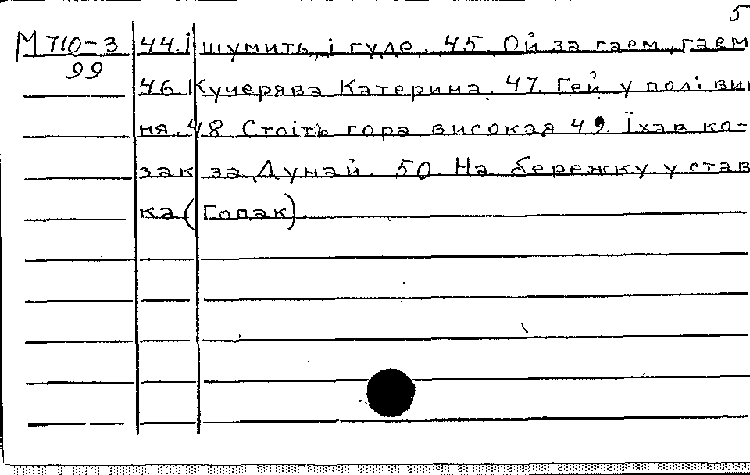 5
М 710-3 44. І шумить, і гуде. 45. Ой за гаєм, гаєм
99
46. Кучерява Катерина. 47. Гей у полі виш
ня. 48 Стоїть гора високая 49. Їхав ко-
зак за Дунай. 50. На бережку у став
ка (Гопак)